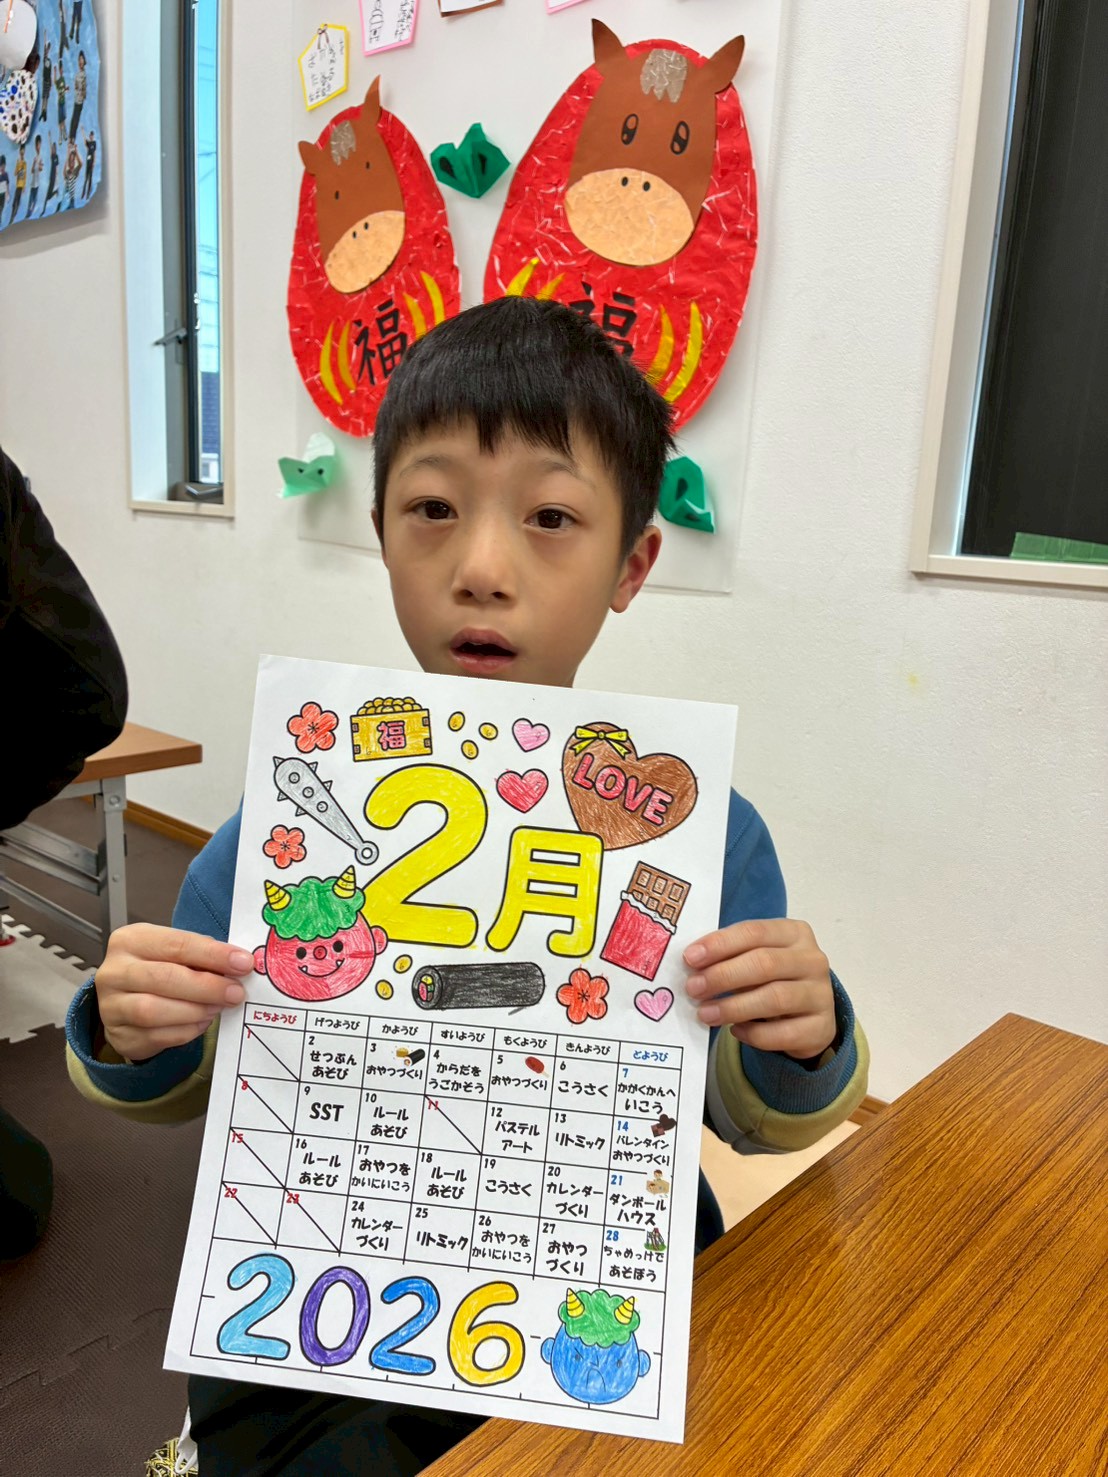 福
福
福
LOVE
2月
にちようび げつようび かようび すいようび もくようび きんようび どようび
1
2 せつぶん あそび
3 おやつづくり
4 からだを うごかそう
5 おやつづくり
6 こうさく
7 かがくかんへ いこう
8
9 SST
10 ルール あそび
11
12 パステル アート
13 リトミック
14 バレンタイン おやつづくり
15
16 ルール あそび
17 おやつを かいにいこう
18 ルール あそび
19 こうさく
20 カレンダー づくり
21 ダンボール ハウス
22
23
24 カレンダー づくり
25 リトミック
26 おやつを かいにいこう
27 おやつ づくり
28 ちゃめっけで あそぼう
2026